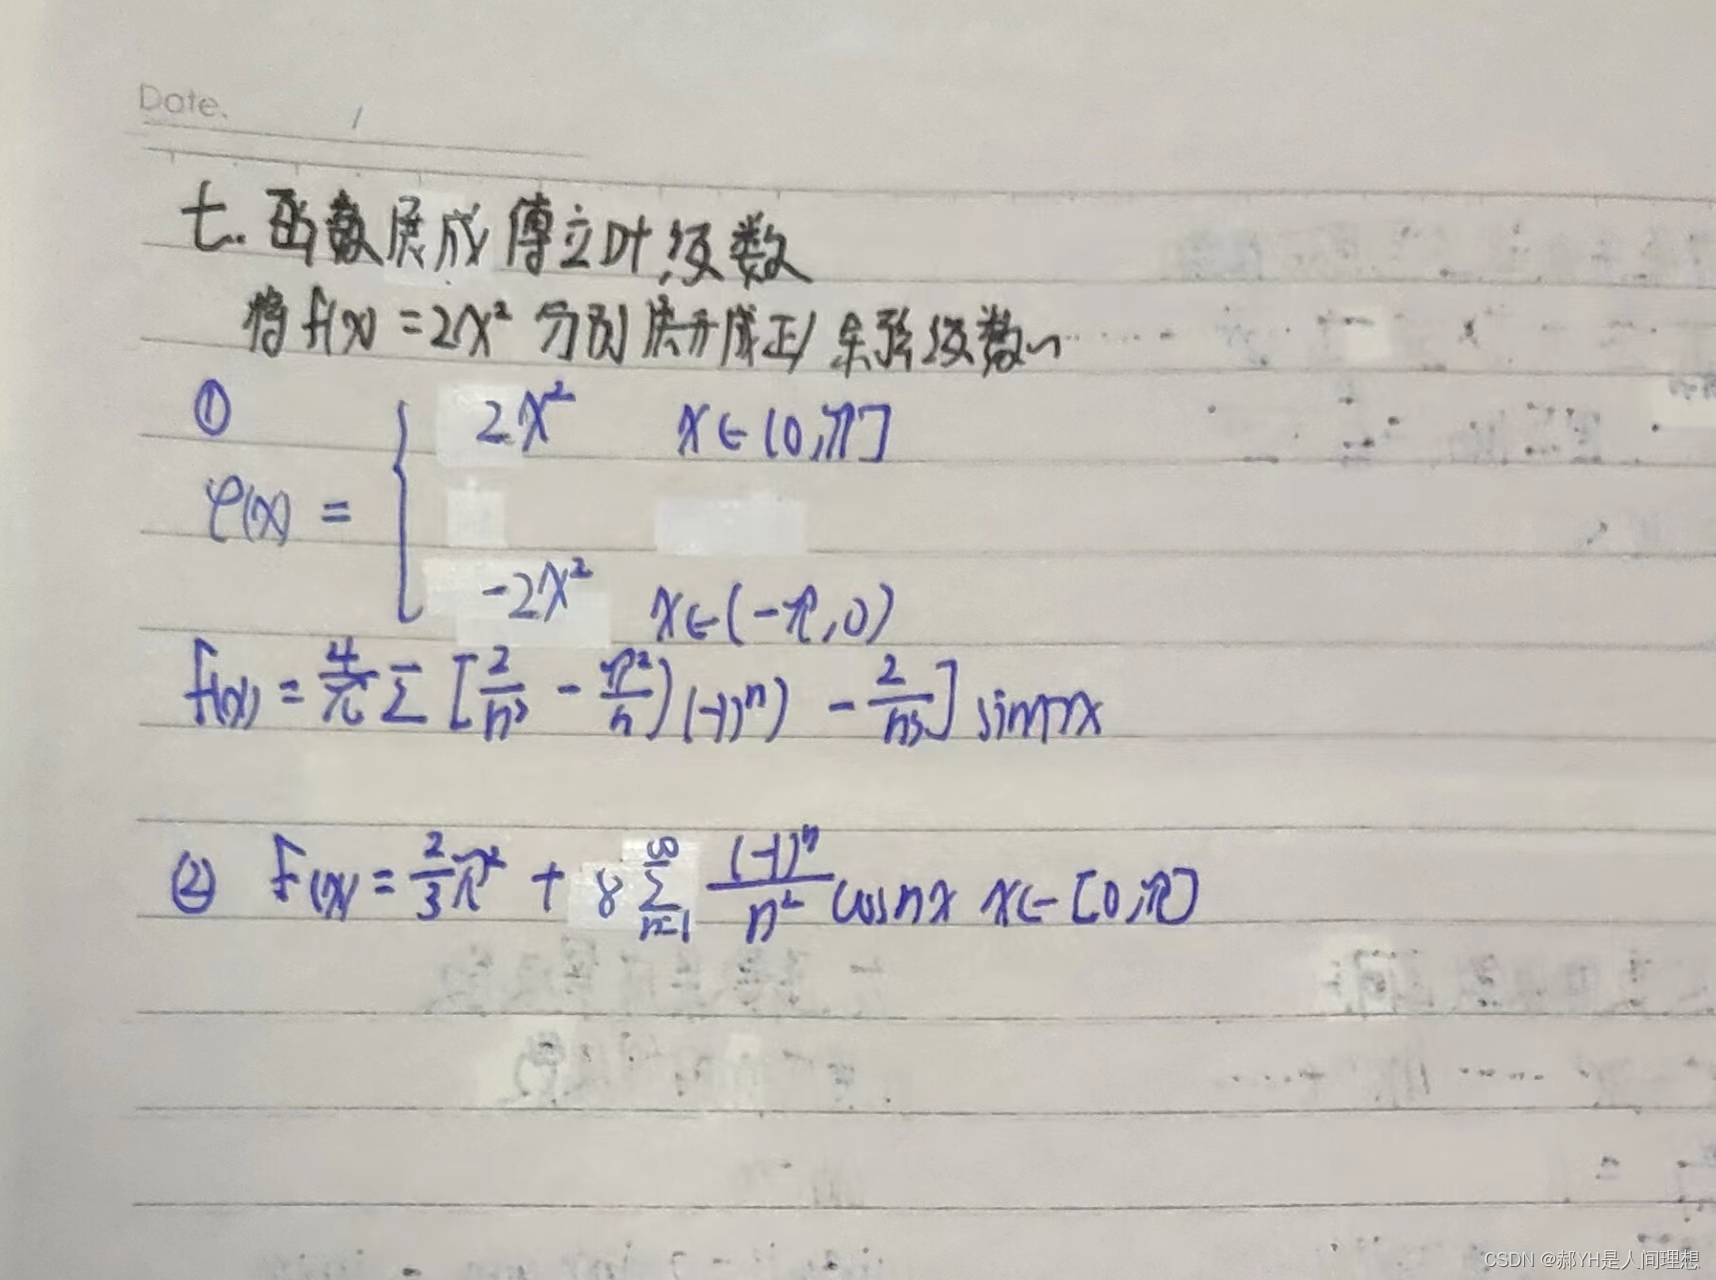 Date. /
七.函数展成傅立叶级数
将f(x)=2x² 分别展开成正/余弦级数~
①
2x² x∈(0,π]
φ(x) =
-2x² x∈(-π,0)
f(x) = 4/π Σ [2/n³ - π²/n)(-1)ⁿ) - 2/n³] sinnx
② f(x) = 2/3 π² + 8 Σ n=1 ∞ (-1)ⁿ/n² cosnx x∈[0,π]
CSDN @郝YH是人间理想